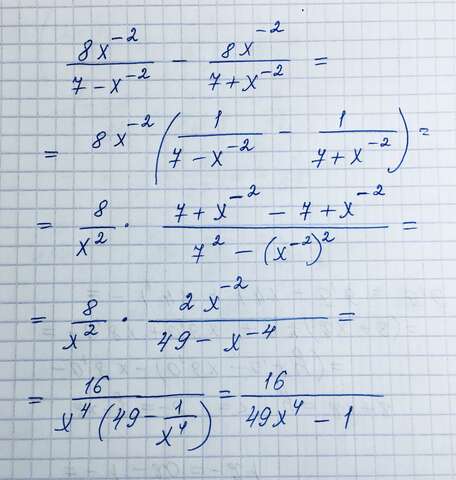 8x⁻²/(7 - x⁻²) - 8x⁻²/(7 + x⁻²) =
= 8x⁻² (1/(7 - x⁻²) - 1/(7 + x⁻²)) =
= 8/x² · (7 + x⁻² - 7 + x⁻²)/(7² - (x⁻²)²) =
= 8/x² · 2x⁻²/(49 - x⁻⁴) =
= 16/(x⁴(49 - 1/x⁴)) = 16/(49x⁴ - 1)